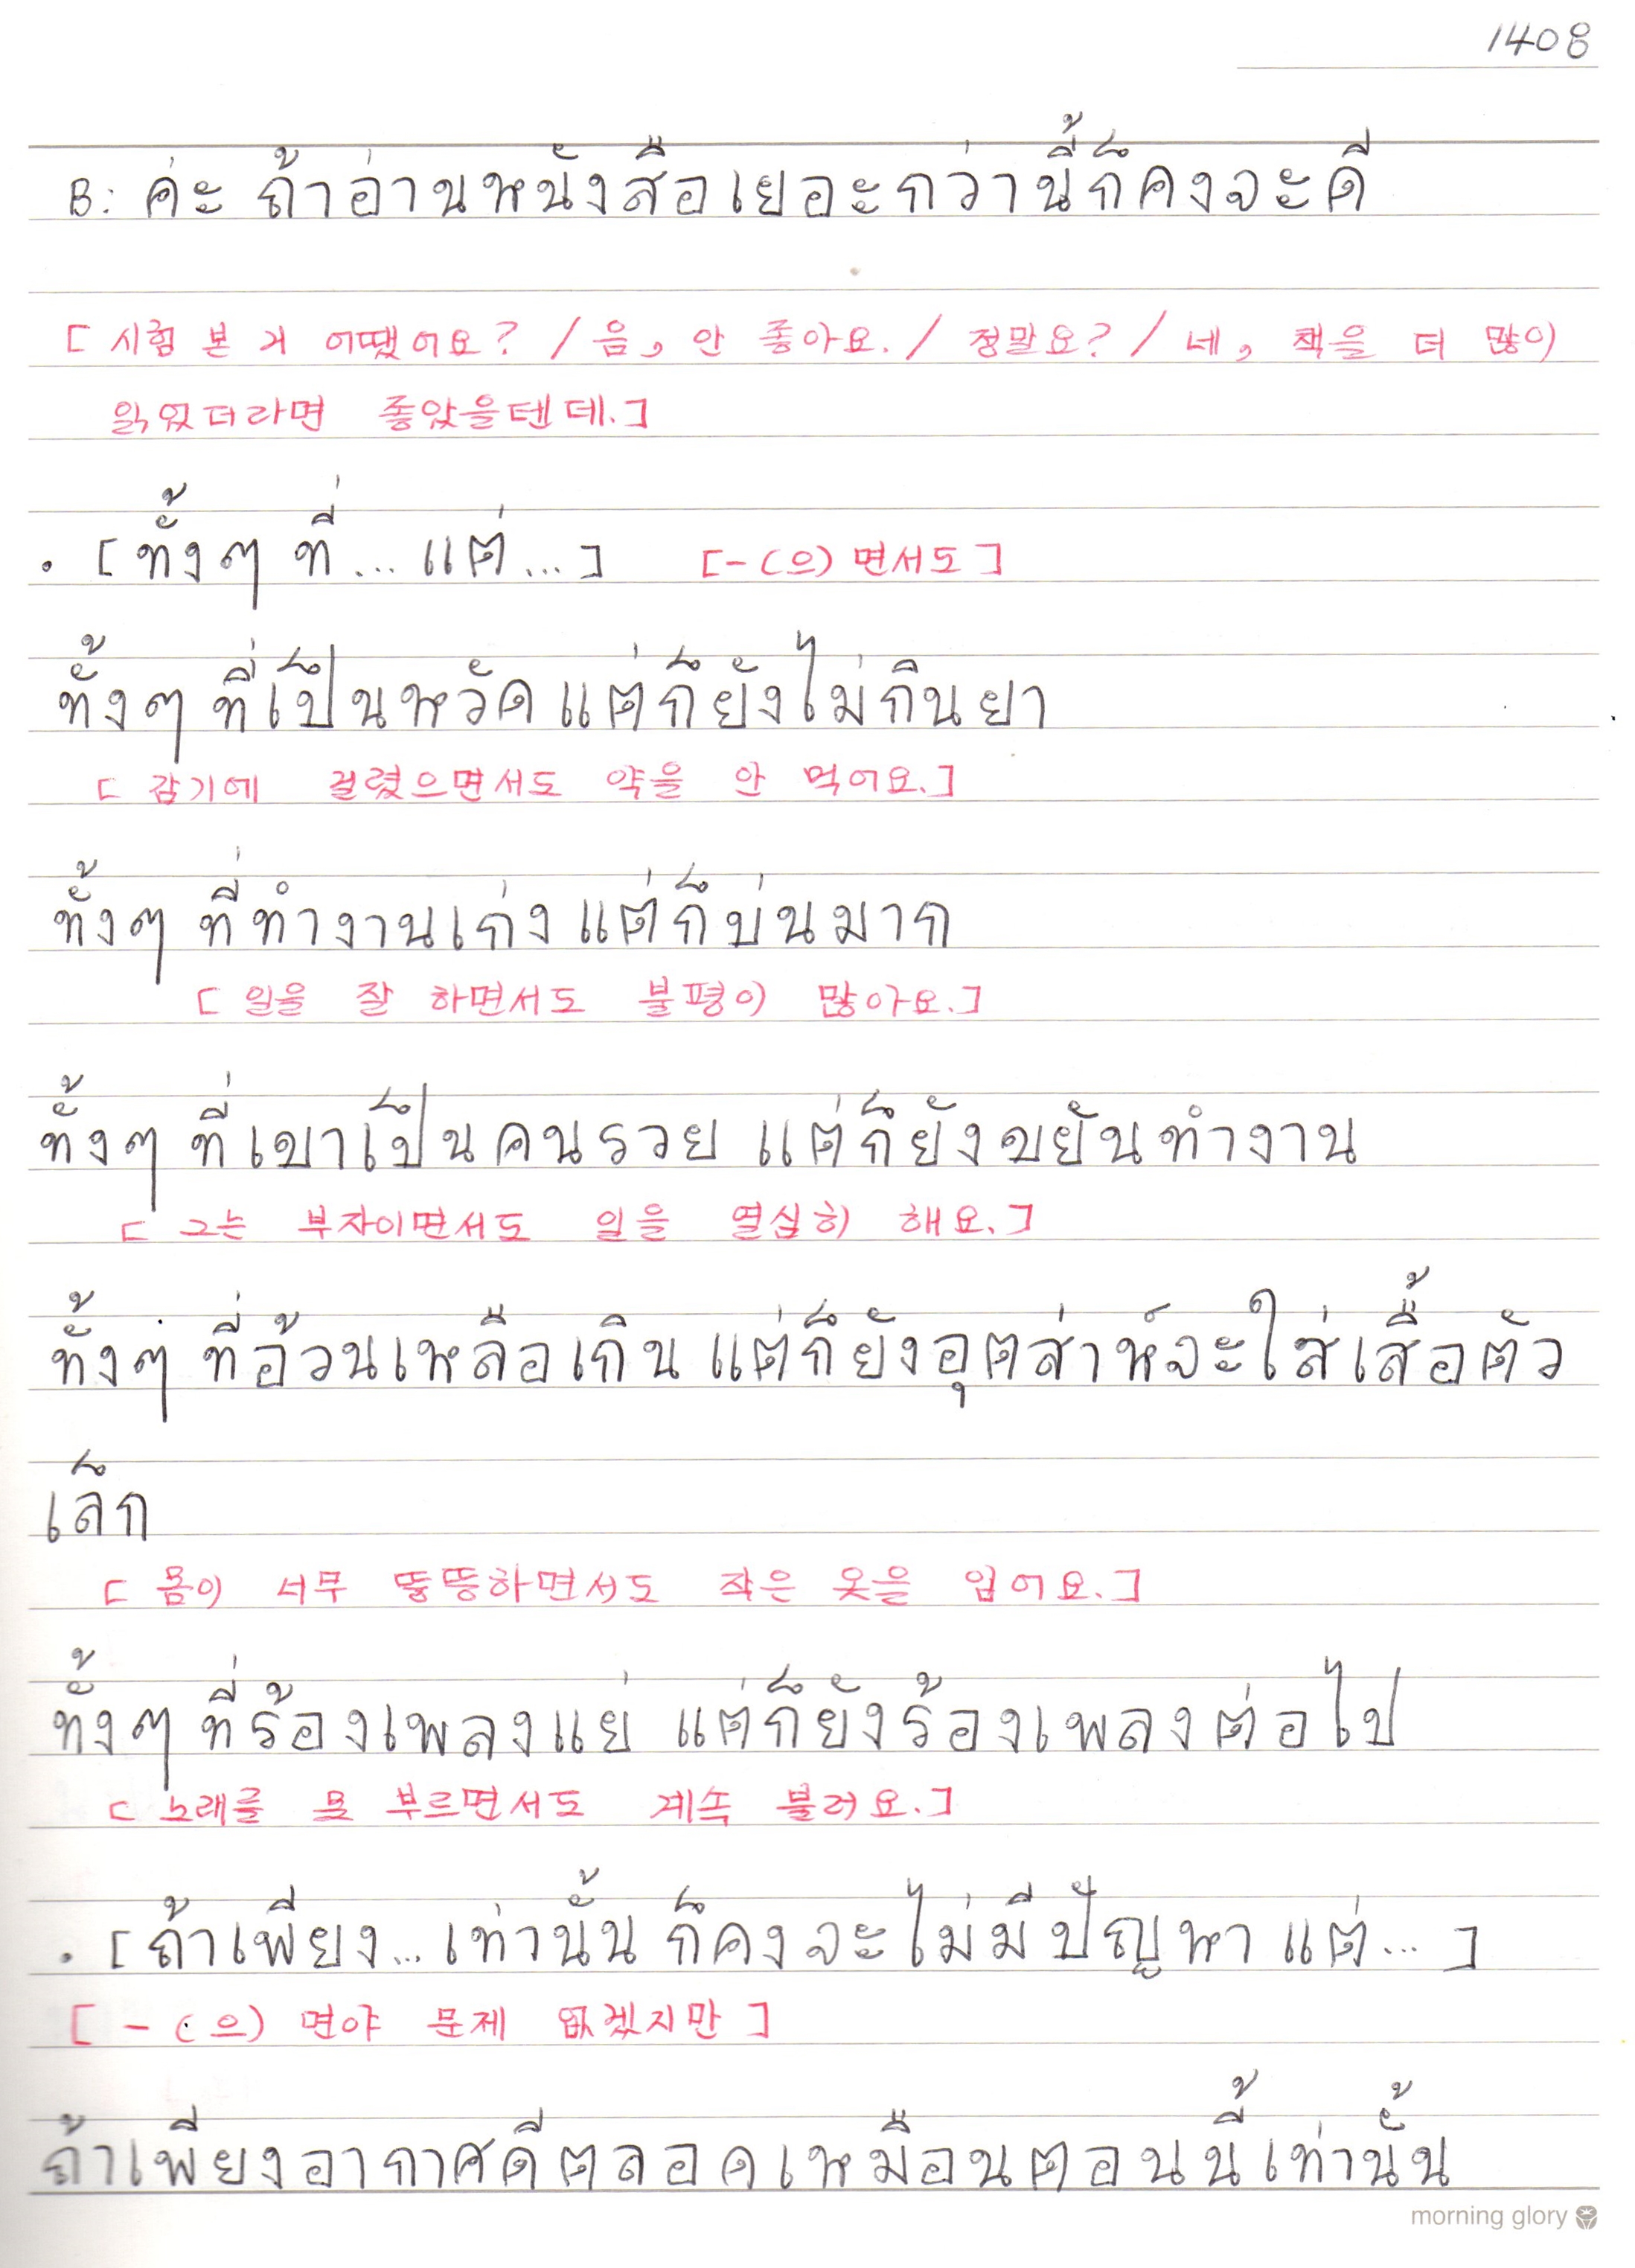 1408
B: ค่ะ ถ้าอ่านหนังสือเยอะกว่านี้ก็คงจะดี
[시험 본 거 어땠어요? / 음, 안 좋아요. / 정말요? / 네, 책을 더 많이
읽었더라면 좋았을텐데.]
· [ทั้งๆ ที่... แต่...] [-(으)면서도]
ทั้งๆ ที่เป็นหวัด แต่ก็ยังไม่กินยา
[감기에 걸렸으면서도 약을 안 먹어요.]
ทั้งๆ ที่ทำงานเก่ง แต่ก็บ่นมาก
[일을 잘 하면서도 불평이 많아요.]
ทั้งๆ ที่เขาเป็นคนรวย แต่ก็ยังขยันทำงาน
[그는 부자이면서도 일을 열심히 해요.]
ทั้งๆ ที่อ้วนเหลือเกิน แต่ก็ยังอุตส่าห์จะใส่เสื้อตัว
เล็ก
[몸이 너무 뚱뚱하면서도 작은 옷을 입어요.]
ทั้งๆ ที่ร้องเพลงแย่ แต่ก็ยังร้องเพลงต่อไป
[노래를 못 부르면서도 계속 불러요.]
· [ถ้าเพียง... เท่านั้น ก็คงจะไม่มีปัญหา แต่...]
[-(으)면야 문제 없겠지만]
ถ้าเพียงอากาศดีตลอดเหมือนตอนนี้เท่านั้น
morning glory